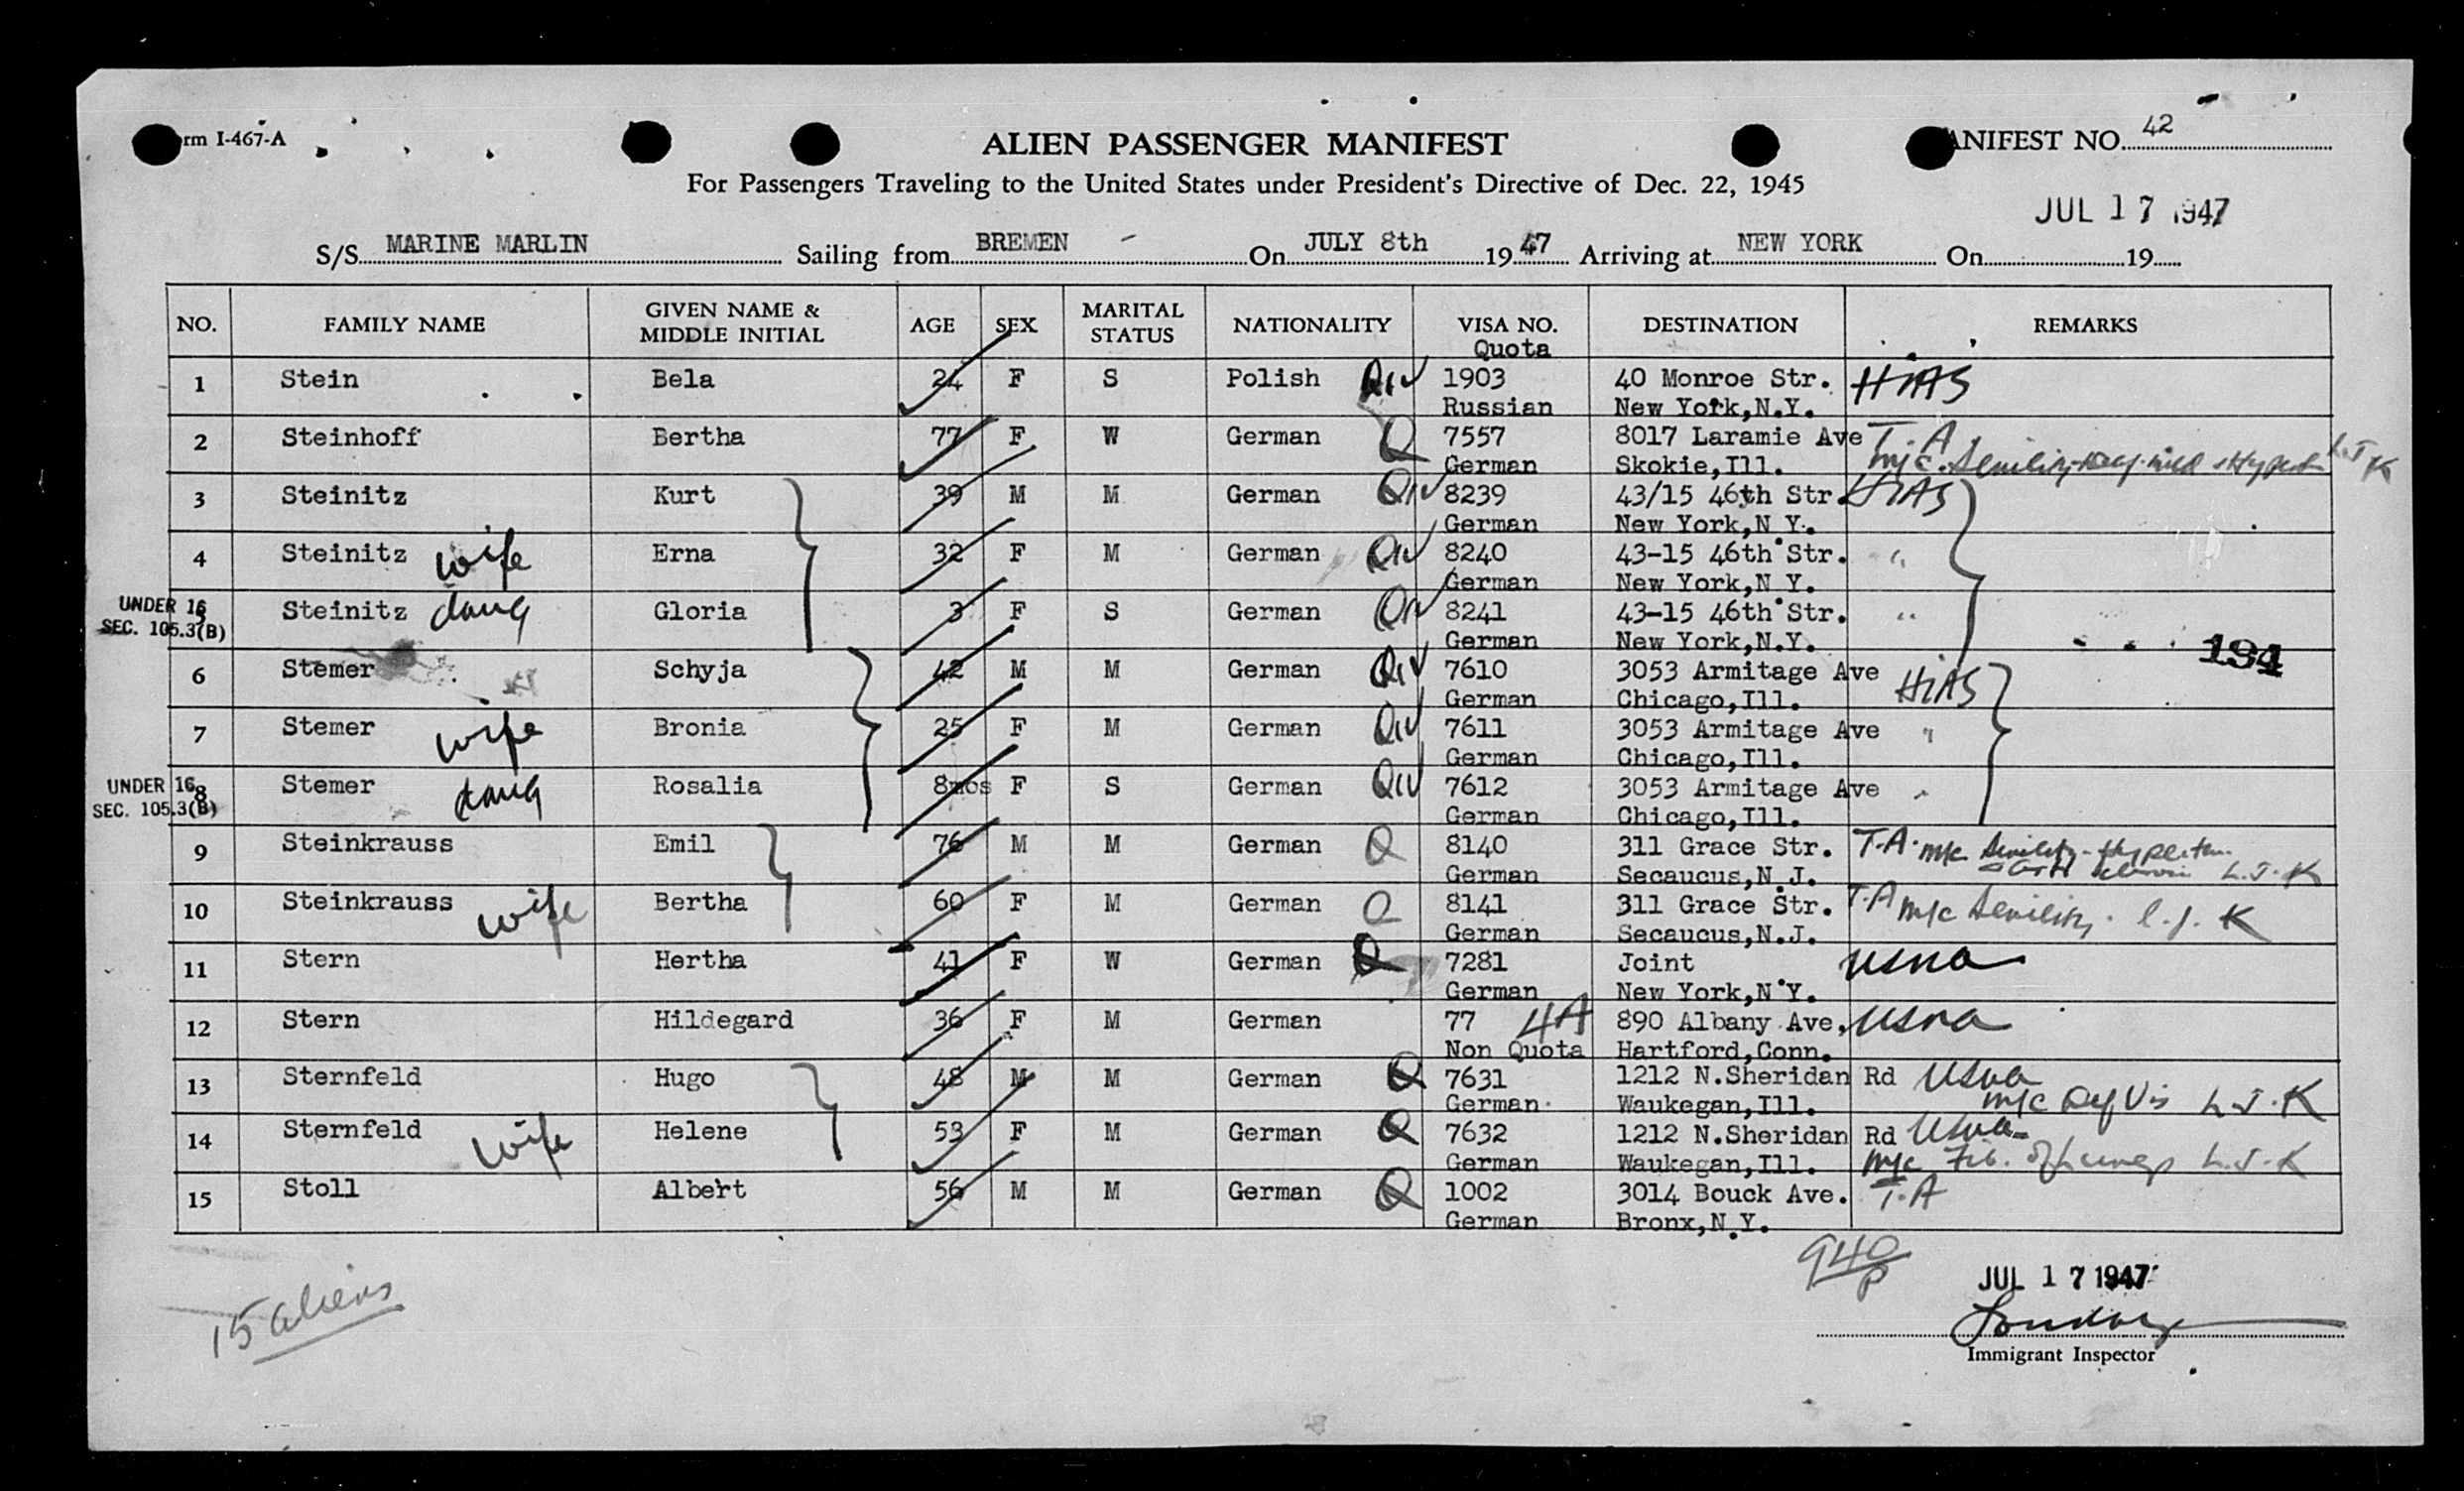 rm I-467-A
ALIEN PASSENGER MANIFEST
ANIFEST NO. 42
For Passengers Traveling to the United States under President's Directive of Dec. 22, 1945
JUL 17 1947
S/S MARINE MARLIN Sailing from BREMEN On JULY 8th 1947 Arriving at NEW YORK On 19
NO. FAMILY NAME GIVEN NAME & MIDDLE INITIAL AGE SEX MARITAL STATUS NATIONALITY VISA NO. Quota DESTINATION REMARKS
1 Stein Bela 24 F S Polish QIV 1903 40 Monroe Str. HIAS
Russian New York,N.Y.
2 Steinhoff Bertha 77 F W German Q 7557 8017 Laramie Ave T.A
German Skokie,Ill. m/c Senility L.J.K
3 Steinitz Kurt 39 M M German QIV 8239 43/15 46th Str. HIAS
German New York,N Y.
4 Steinitz wife Erna 32 F M German QIV 8240 43-15 46th Str. "
German New York,N.Y.
UNDER 16
SEC. 105.3(B)
5 Steinitz daug Gloria 3 F S German QIV 8241 43-15 46th Str. "
German New York,N.Y.
194
6 Stemer Schyja 42 M M German QIV 7610 3053 Armitage Ave HIAS
German Chicago,Ill.
7 Stemer wife Bronia 25 F M German QIV 7611 3053 Armitage Ave "
German Chicago,Ill.
UNDER 16
SEC. 105.3(B)
8 Stemer daug Rosalia 8mos F S German QIV 7612 3053 Armitage Ave "
German Chicago,Ill.
9 Steinkrauss Emil 76 M M German Q 8140 311 Grace Str. T.A. m/c Senility
German Secaucus,N.J. L.J.K
10 Steinkrauss wife Bertha 60 F M German Q 8141 311 Grace Str. T.A m/c Senility. L.J.K
German Secaucus,N.J.
11 Stern Hertha 41 F W German Q 7281 Joint usna
German New York,N.Y.
12 Stern Hildegard 36 F M German 77 4A 890 Albany Ave, usna
Non Quota Hartford,Conn.
13 Sternfeld Hugo 48 M M German Q 7631 1212 N.Sheridan Rd usna
German Waukegan,Ill. m/c Def Vis L.J.K
14 Sternfeld wife Helene 53 F M German Q 7632 1212 N.Sheridan Rd usna
German Waukegan,Ill. m/c Fib. of L.J.K
15 Stoll Albert 56 M M German Q 1002 3014 Bouck Ave. T.A
German Bronx,N.Y.
15 aliens
940
P
JUL 17 1947
Immigrant Inspector